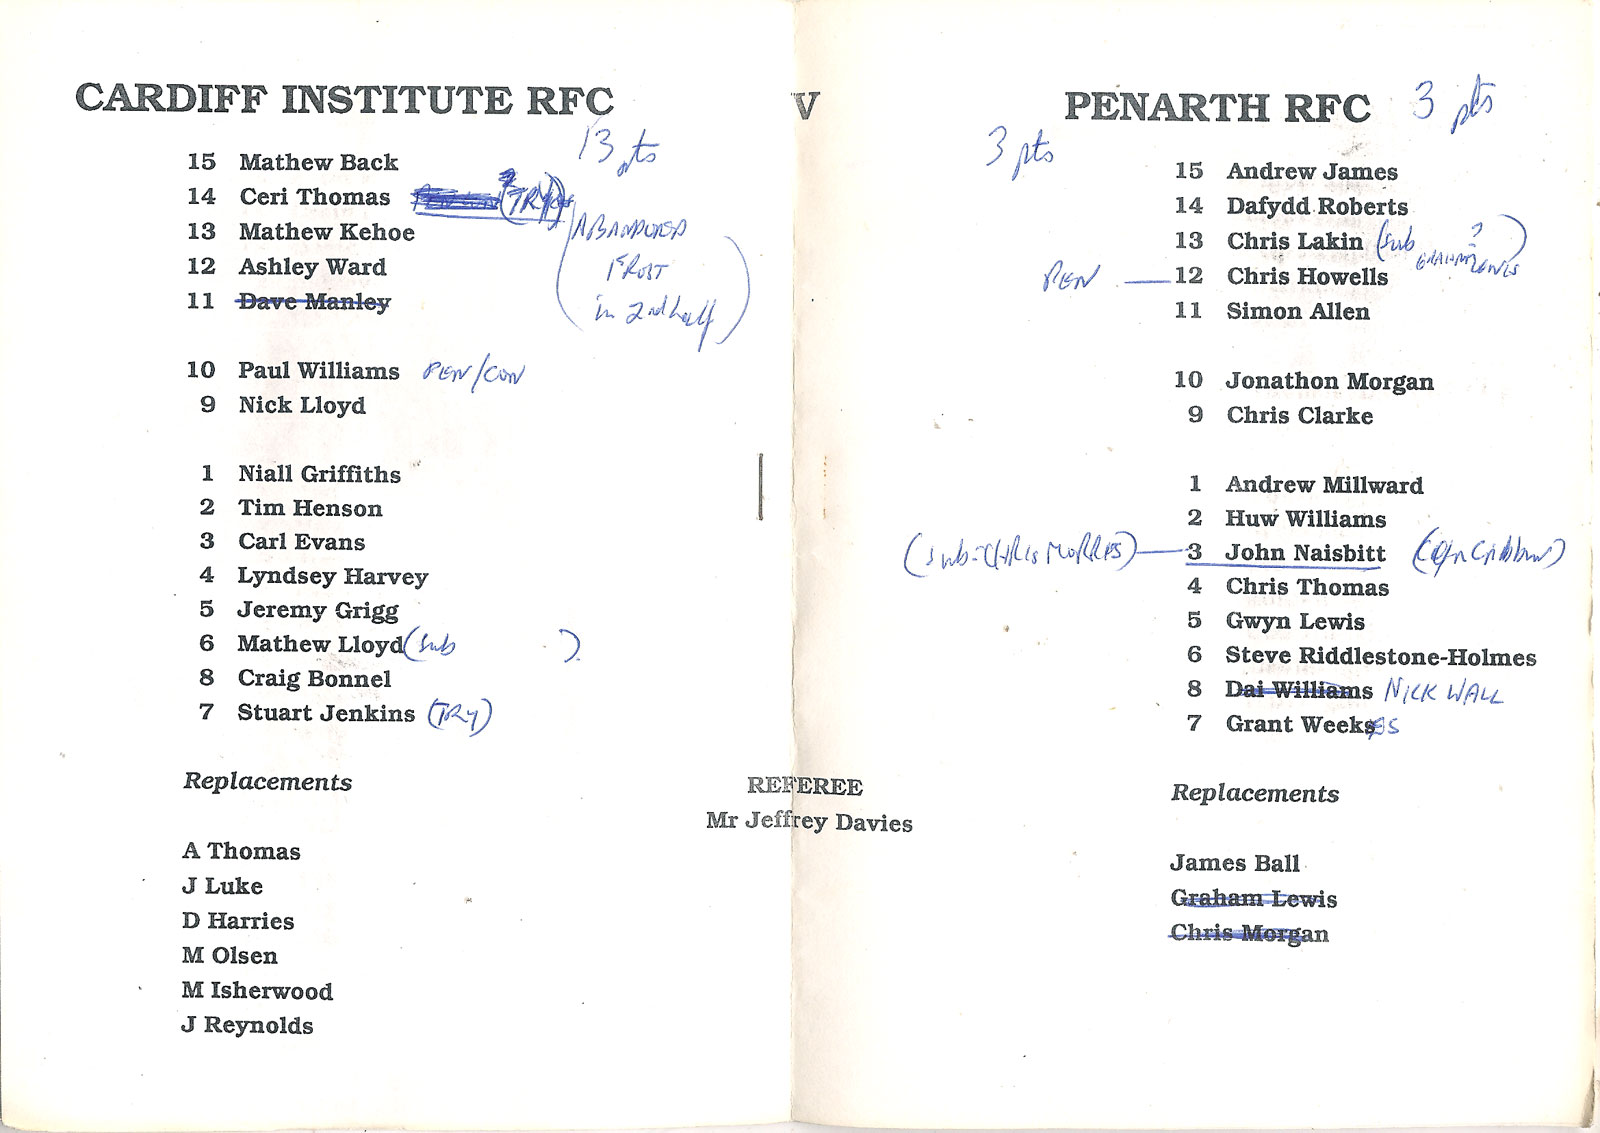 CARDIFF INSTITUTE RFC V PENARTH RFC 3 pts
13 pts
15 Mathew Back
14 Ceri Thomas (TRY)
13 Mathew Kehoe
12 Ashley Ward
11 Dave Manley
(ABANDONED
FROST
in 2nd half)
10 Paul Williams PEN/CON
9 Nick Lloyd
1 Niall Griffiths
2 Tim Henson
3 Carl Evans
4 Lyndsey Harvey
5 Jeremy Grigg
6 Mathew Lloyd (sub )
8 Craig Bonnel
7 Stuart Jenkins (TRY)
Replacements
A Thomas
J Luke
D Harries
M Olsen
M Isherwood
J Reynolds
REFEREE
Mr Jeffrey Davies
3 pts
15 Andrew James
14 Dafydd Roberts
13 Chris Lakin (sub ? )
GRAHAM LEWIS
PEN — 12 Chris Howells
11 Simon Allen
10 Jonathon Morgan
9 Chris Clarke
1 Andrew Millward
2 Huw Williams
(sub = CHRIS MORRIS) — 3 John Naisbitt
4 Chris Thomas
5 Gwyn Lewis
6 Steve Riddlestone-Holmes
8 Dai Williams NICK WALL
7 Grant Weeks ES
Replacements
James Ball
Graham Lewis
Chris Morgan